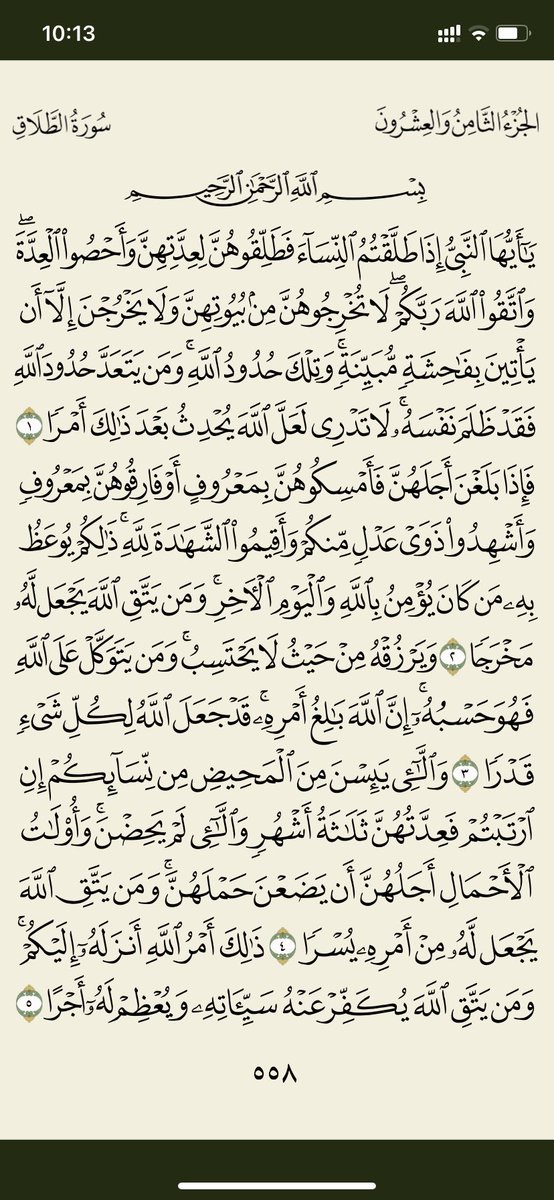 10:13
الجُزْءُ الثَّامِنُ وَالعِشْرُونَ
سُورَةُ الطَّلَاقِ
بِسْمِ ٱللَّهِ ٱلرَّحْمَٰنِ ٱلرَّحِيمِ
يَٰٓأَيُّهَا ٱلنَّبِيُّ إِذَا طَلَّقْتُمُ ٱلنِّسَآءَ فَطَلِّقُوهُنَّ لِعِدَّتِهِنَّ وَأَحْصُوا۟ ٱلْعِدَّةَۖ
وَٱتَّقُوا۟ ٱللَّهَ رَبَّكُمْۖ لَا تُخْرِجُوهُنَّ مِنۢ بُيُوتِهِنَّ وَلَا يَخْرُجْنَ إِلَّآ أَن
يَأْتِينَ بِفَٰحِشَةٍ مُّبَيِّنَةٍۚ وَتِلْكَ حُدُودُ ٱللَّهِۚ وَمَن يَتَعَدَّ حُدُودَ ٱللَّهِ
فَقَدْ ظَلَمَ نَفْسَهُۥۚ لَا تَدْرِى لَعَلَّ ٱللَّهَ يُحْدِثُ بَعْدَ ذَٰلِكَ أَمْرًا ١
فَإِذَا بَلَغْنَ أَجَلَهُنَّ فَأَمْسِكُوهُنَّ بِمَعْرُوفٍ أَوْ فَارِقُوهُنَّ بِمَعْرُوفٍ
وَأَشْهِدُوا۟ ذَوَىْ عَدْلٍ مِّنكُمْ وَأَقِيمُوا۟ ٱلشَّهَٰدَةَ لِلَّهِۚ ذَٰلِكُمْ يُوعَظُ
بِهِۦ مَن كَانَ يُؤْمِنُ بِٱللَّهِ وَٱلْيَوْمِ ٱلْءَاخِرِۚ وَمَن يَتَّقِ ٱللَّهَ يَجْعَل لَّهُۥ
مَخْرَجًا ٢ وَيَرْزُقْهُ مِنْ حَيْثُ لَا يَحْتَسِبُۚ وَمَن يَتَوَكَّلْ عَلَى ٱللَّهِ
فَهُوَ حَسْبُهُۥٓۚ إِنَّ ٱللَّهَ بَٰلِغُ أَمْرِهِۦۚ قَدْ جَعَلَ ٱللَّهُ لِكُلِّ شَىْءٍ
قَدْرًا ٣ وَٱلَّٰٓـِٔى يَئِسْنَ مِنَ ٱلْمَحِيضِ مِن نِّسَآئِكُمْ إِنِ
ٱرْتَبْتُمْ فَعِدَّتُهُنَّ ثَلَٰثَةُ أَشْهُرٍ وَٱلَّٰٓـِٔى لَمْ يَحِضْنَۚ وَأُو۟لَٰتُ
ٱلْأَحْمَالِ أَجَلُهُنَّ أَن يَضَعْنَ حَمْلَهُنَّۚ وَمَن يَتَّقِ ٱللَّهَ
يَجْعَل لَّهُۥ مِنْ أَمْرِهِۦ يُسْرًا ٤ ذَٰلِكَ أَمْرُ ٱللَّهِ أَنزَلَهُۥٓ إِلَيْكُمْۚ
وَمَن يَتَّقِ ٱللَّهَ يُكَفِّرْ عَنْهُ سَيِّـَٔاتِهِۦ وَيُعْظِمْ لَهُۥٓ أَجْرًا ٥
٥٥٨